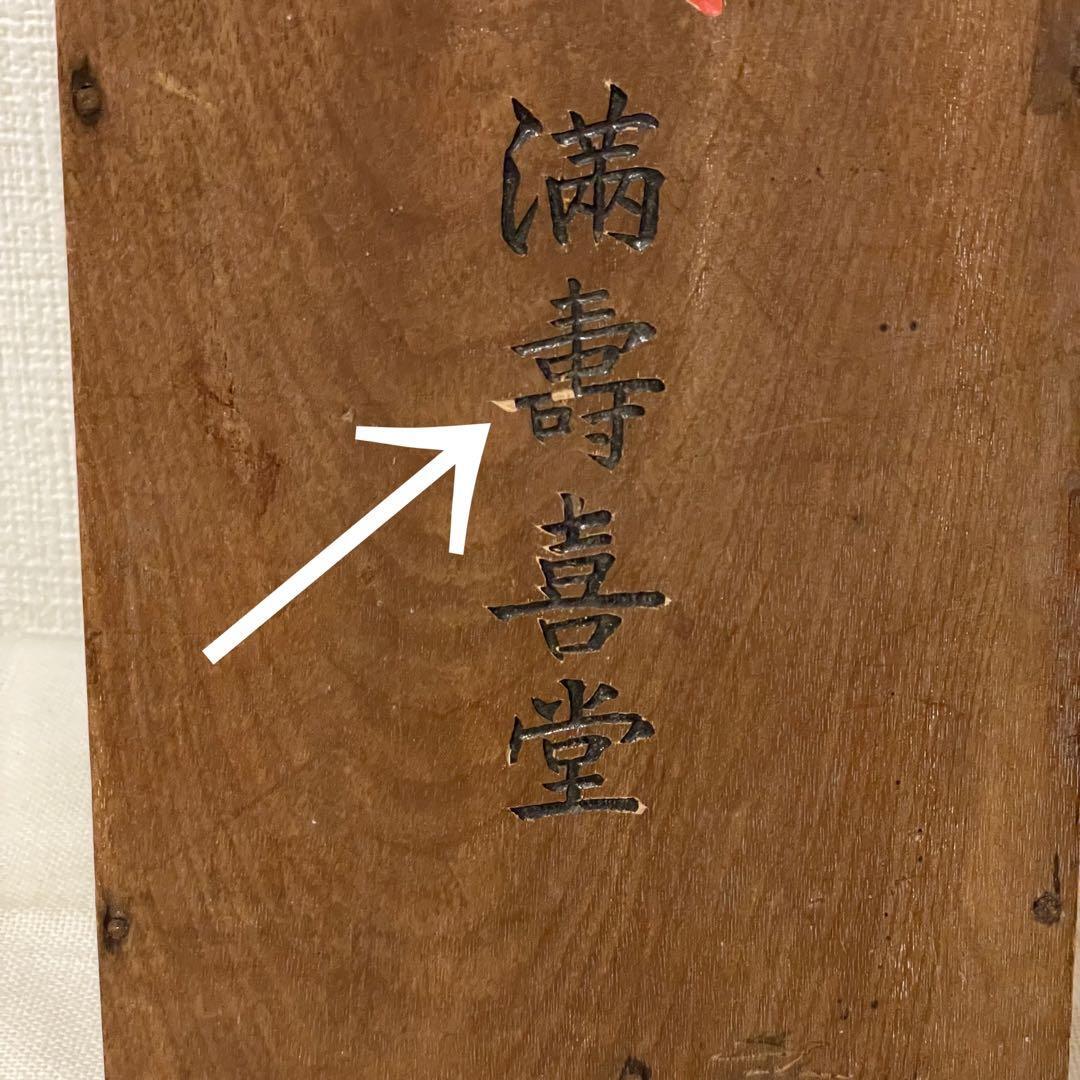 満壽喜堂